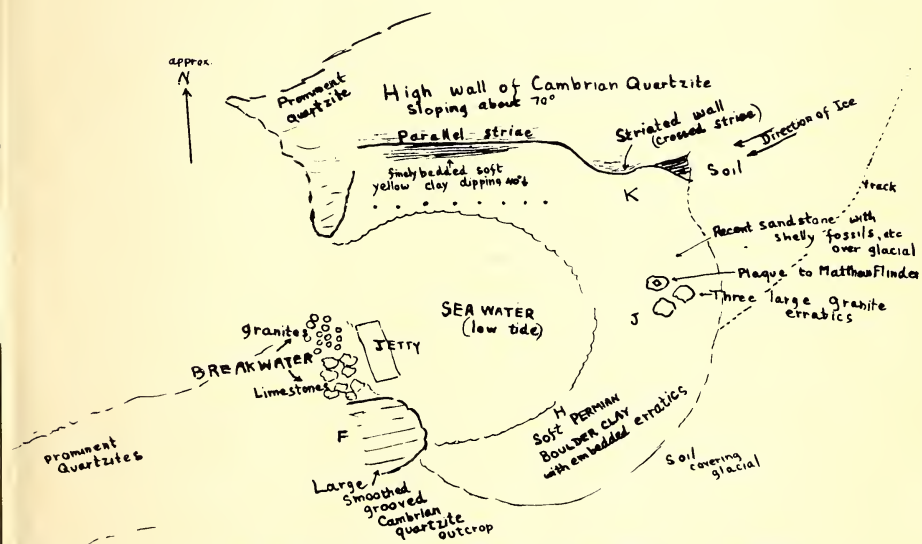 approx.
N
Prominent
quartzite
High wall of Cambrian Quartzite
Sloping about 70°
Parallel striae
finely bedded soft
yellow clay dipping 40°
Striated wall
(crossed striae)
Direction of Ice
Soil
K
track
Recent sandstone with
shelly fossils, etc
over glacial
Plaque to Matthew Flinder
Three large granite
erratics
J
SEA WATER
(low tide)
granites
JETTY
BREAKWATER
Limestones
F
Prominent
Quartzites
H
Soft PERMIAN
BOULDER CLAY
with embedded erratics
Soil
covering
glacial
Large
Smoothed
grooved
Cambrian
quartzite
outcrop